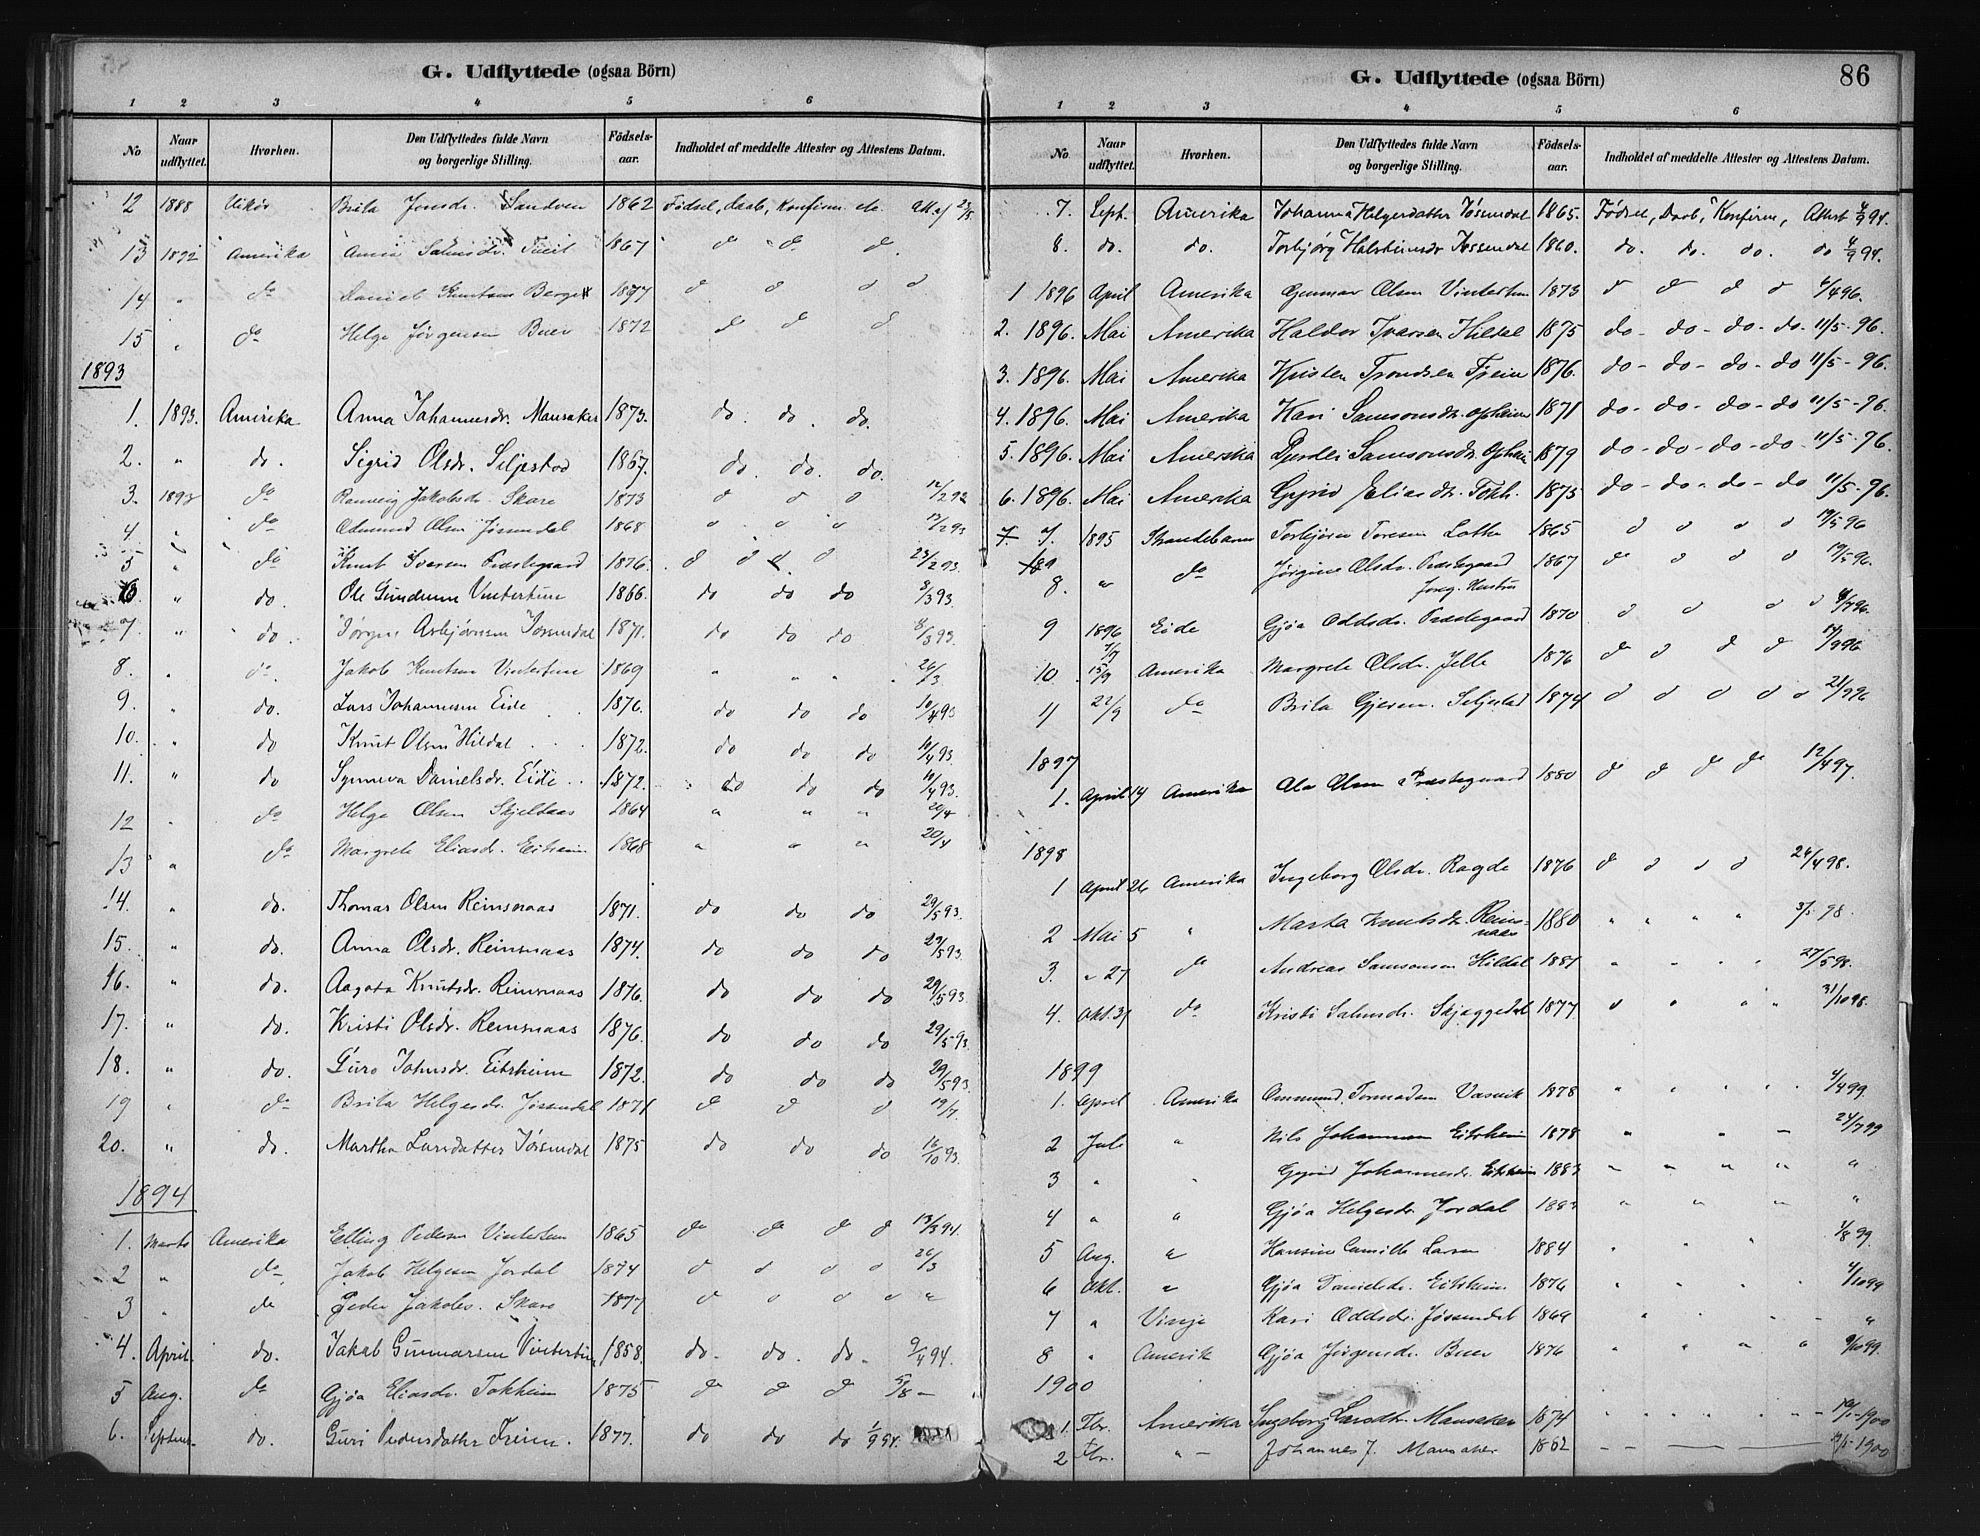 G. Udflyttede (ogsaa Börn)
1 2 3 4 5 6
No Naar udflyttet. Hvorhen. Den Udflyttedes fulde Navn og borgerlige Stilling. Födsels-aar. Indholdet af meddelte Attester og Attestens Datum.
12 1888 Vikör Brita Jonsdr. Sandven 1862 Fødsel, Daab, Konfirm. etc.
13 1892 Amerika Anna Salmsdr. Tveit 1867 d d d
14 " do Daniel Knutsen Berge 1877 d d d d
15 " do Helge Jørgensen Buer 1872 d d d
1893
1. 1893. Amerika Anna Johannesdr. Mansaker 1873. do. do. do.
2. " do. Sigrid Olsdr. Seljestad 1867. do. do. do.
3. 1893 do Ranveig Jakobsdr. Skare 1873 d d d 12/2 93
4 " do Odmund Olsen Jøsendal 1868 d d d 17/2 93
5 " do Knut Ivarsen Prestegaard 1876. d d d d 23/2 93.
6. " do. Ole Gunderson Vintertun 1866. do do do 8/3 93.
7 " do. Jørgen Asbjørnsen Jøsendal 1871. do do do 8/3 93.
8. " do. Jakob Knutsen Vintertun 1869 " " " 26/3
9. " do. Lars Johannesen Eide 1876. do do do 10/4 93
10. " do Knut Olsen Hildal 1872. do do do 10/4 93.
11. " do Synneva Danielsdr. Eide 1872. do do do 10/4 93.
12 " do Helge Olsen Skjelbaas 1864 " " " 20/4
13 " do Margrete Eliasdr. Eitrheim 1868 " " " 20/4
14. " do. Thomas Olsen Reinsnaas 1871. do do do 29/5 93.
15. " do. Anna Olsdr. Reinsnaas 1874. do do do 29/5 93.
16. " do. Aagata Knutsdr. Reinsnaas 1876. do do do 29/5 93.
17. " do. Kristi Olsdr. Reinsnaas 1876. do do do 29/5-93.
18. " do. Guro Johnsdr. Eitrheim 1872. do do do 29/5 93
19 " do Brita Helgesdr. Jøsendal 1871 d d d 19/7.
20. " do. Martha Larsdatter Jøsendal 1875 do do do 16/10 93.
1894
1. Marts Amerika Elling Pedersen Vintertun 1865 d d d d 13/3 94.
2 " do Jakob Helgesen Jordal 1874 d d d d 26/3
3 " do Peder Jakobs. Skare 1877 d d d d "
4. April do. Jakob Gunnarsen Vintertun 1858. do. do. do. 9/4 94.
5 Aug. do Gjøa Eliasdr. Tokheim 1875 d d d 5/8 –
6. Septem. do. Guri Pedersdatter Freim. 1877. do do do 1/9 94.
G. Udflyttede (ogsaa Börn) 86
1 2 3 4 5 6
No Naar udflyttet. Hvorhen. Den Udflyttedes fulde Navn og borgerlige Stilling. Födsels-aar. Indholdet af meddelte Attester og Attestens Datum.
7. Sept. Amerika Johanna Helgesdatter Jøsendal 1865. Fødsel, Daab, Konfirm, Attest 4/9 94.
8. do. do. Torbjørg Halsteinsdr Jøssendal 1860. do. do. do. do 4/9 94.
1 1896 April Amerika Gunnar Olsen Vintertun 1873 d d d d 6/4 96.
2. 1896. Mai Amerika Haldor Ivarsen Hildal 1875 do - do - do - do - 11/5 - 96.
3. 1896. Mai Amerika Kristen Trondsen Freim 1876. do - do - do - do 11/5 - 96.
4. 1896. Mai Amerika Kari Samsonsdr. Opheim 1871 do - do - do - do 11/5 - 96.
5. 1896. Mai Amerika Samsonsdr. Opheim 1879 do - do - do - do - 11/5 - 96.
6. 1896. Mai Amerika Gyrid Eliasdr. Tokh. 1873 do - do - do - do 11/5 - 96.
7. 1895 Strandebarm Torbjørn Toresen Lothe 1865 d d d d 19/5 96
8. " do Jørgine Olsdr. Prestegaard 1867 d d d d 19/5 96.
foreg. Hustru
9 1896 7/7 Eide Gjøa Oddsdr. Prestegaard 1870 d d d d 6/7 96.
10 15/9 Amerika Margrete Olsdr. Jelle 1876 d d d d
11 22/9 do Brita Gjersen. Seljestad 1874 d d d d d 21/9 96
1897
1. April 14 Amerika Ola Olsen Prestegaard 1880 d d d d 12/4 97.
1898
1 April 26 Amerika Ingeborg Olsdr. Ragde 1876 d d d d 26/4 98.
2 Mai 5 " Marta Knutsdr. Reinsnaas 1880 " " " " 3/5 98.
3. " 27 do Andreas Samsonsen Hildal 1881 " " " " 27/5 98.
4. Okt. 31 do Kristi Salmdr. Skjæggedal 1877 d " " " 31/10 98.
1899
1. April Amerika Ommund Tormodsen Vasvik 1878 " " " " 4/4 99.
2 Juli " Nils Johannesen Eitrheim 1878 " " " 24/7 99
3 " " Gyrid Johannesdr. Eitrheim 1883 " " " " "
4 " " Gjøa Helgesdr. Jordal 1883 " " " " "
5 Aug. " Hansine Camilla Larsen 1884 " " " 1/8 99.
6 Okt. " Gjøa Danielsdr. Eitrheim 1876 " " " " 4/10 99
7 " Vinje Kari Oddsdr. Jøssendal 1869 " " " " "
8 " Amerik Gjøa Jørgensdr. Buer 1876 " " " " 9/10 99.
1900
1. Fbr. Amerika Ingeborg Larsdtr. Mansaker 1874 " " " " 1900
2 Fbr. " – Johannes J. Mansaker 1862 – – – – 1900